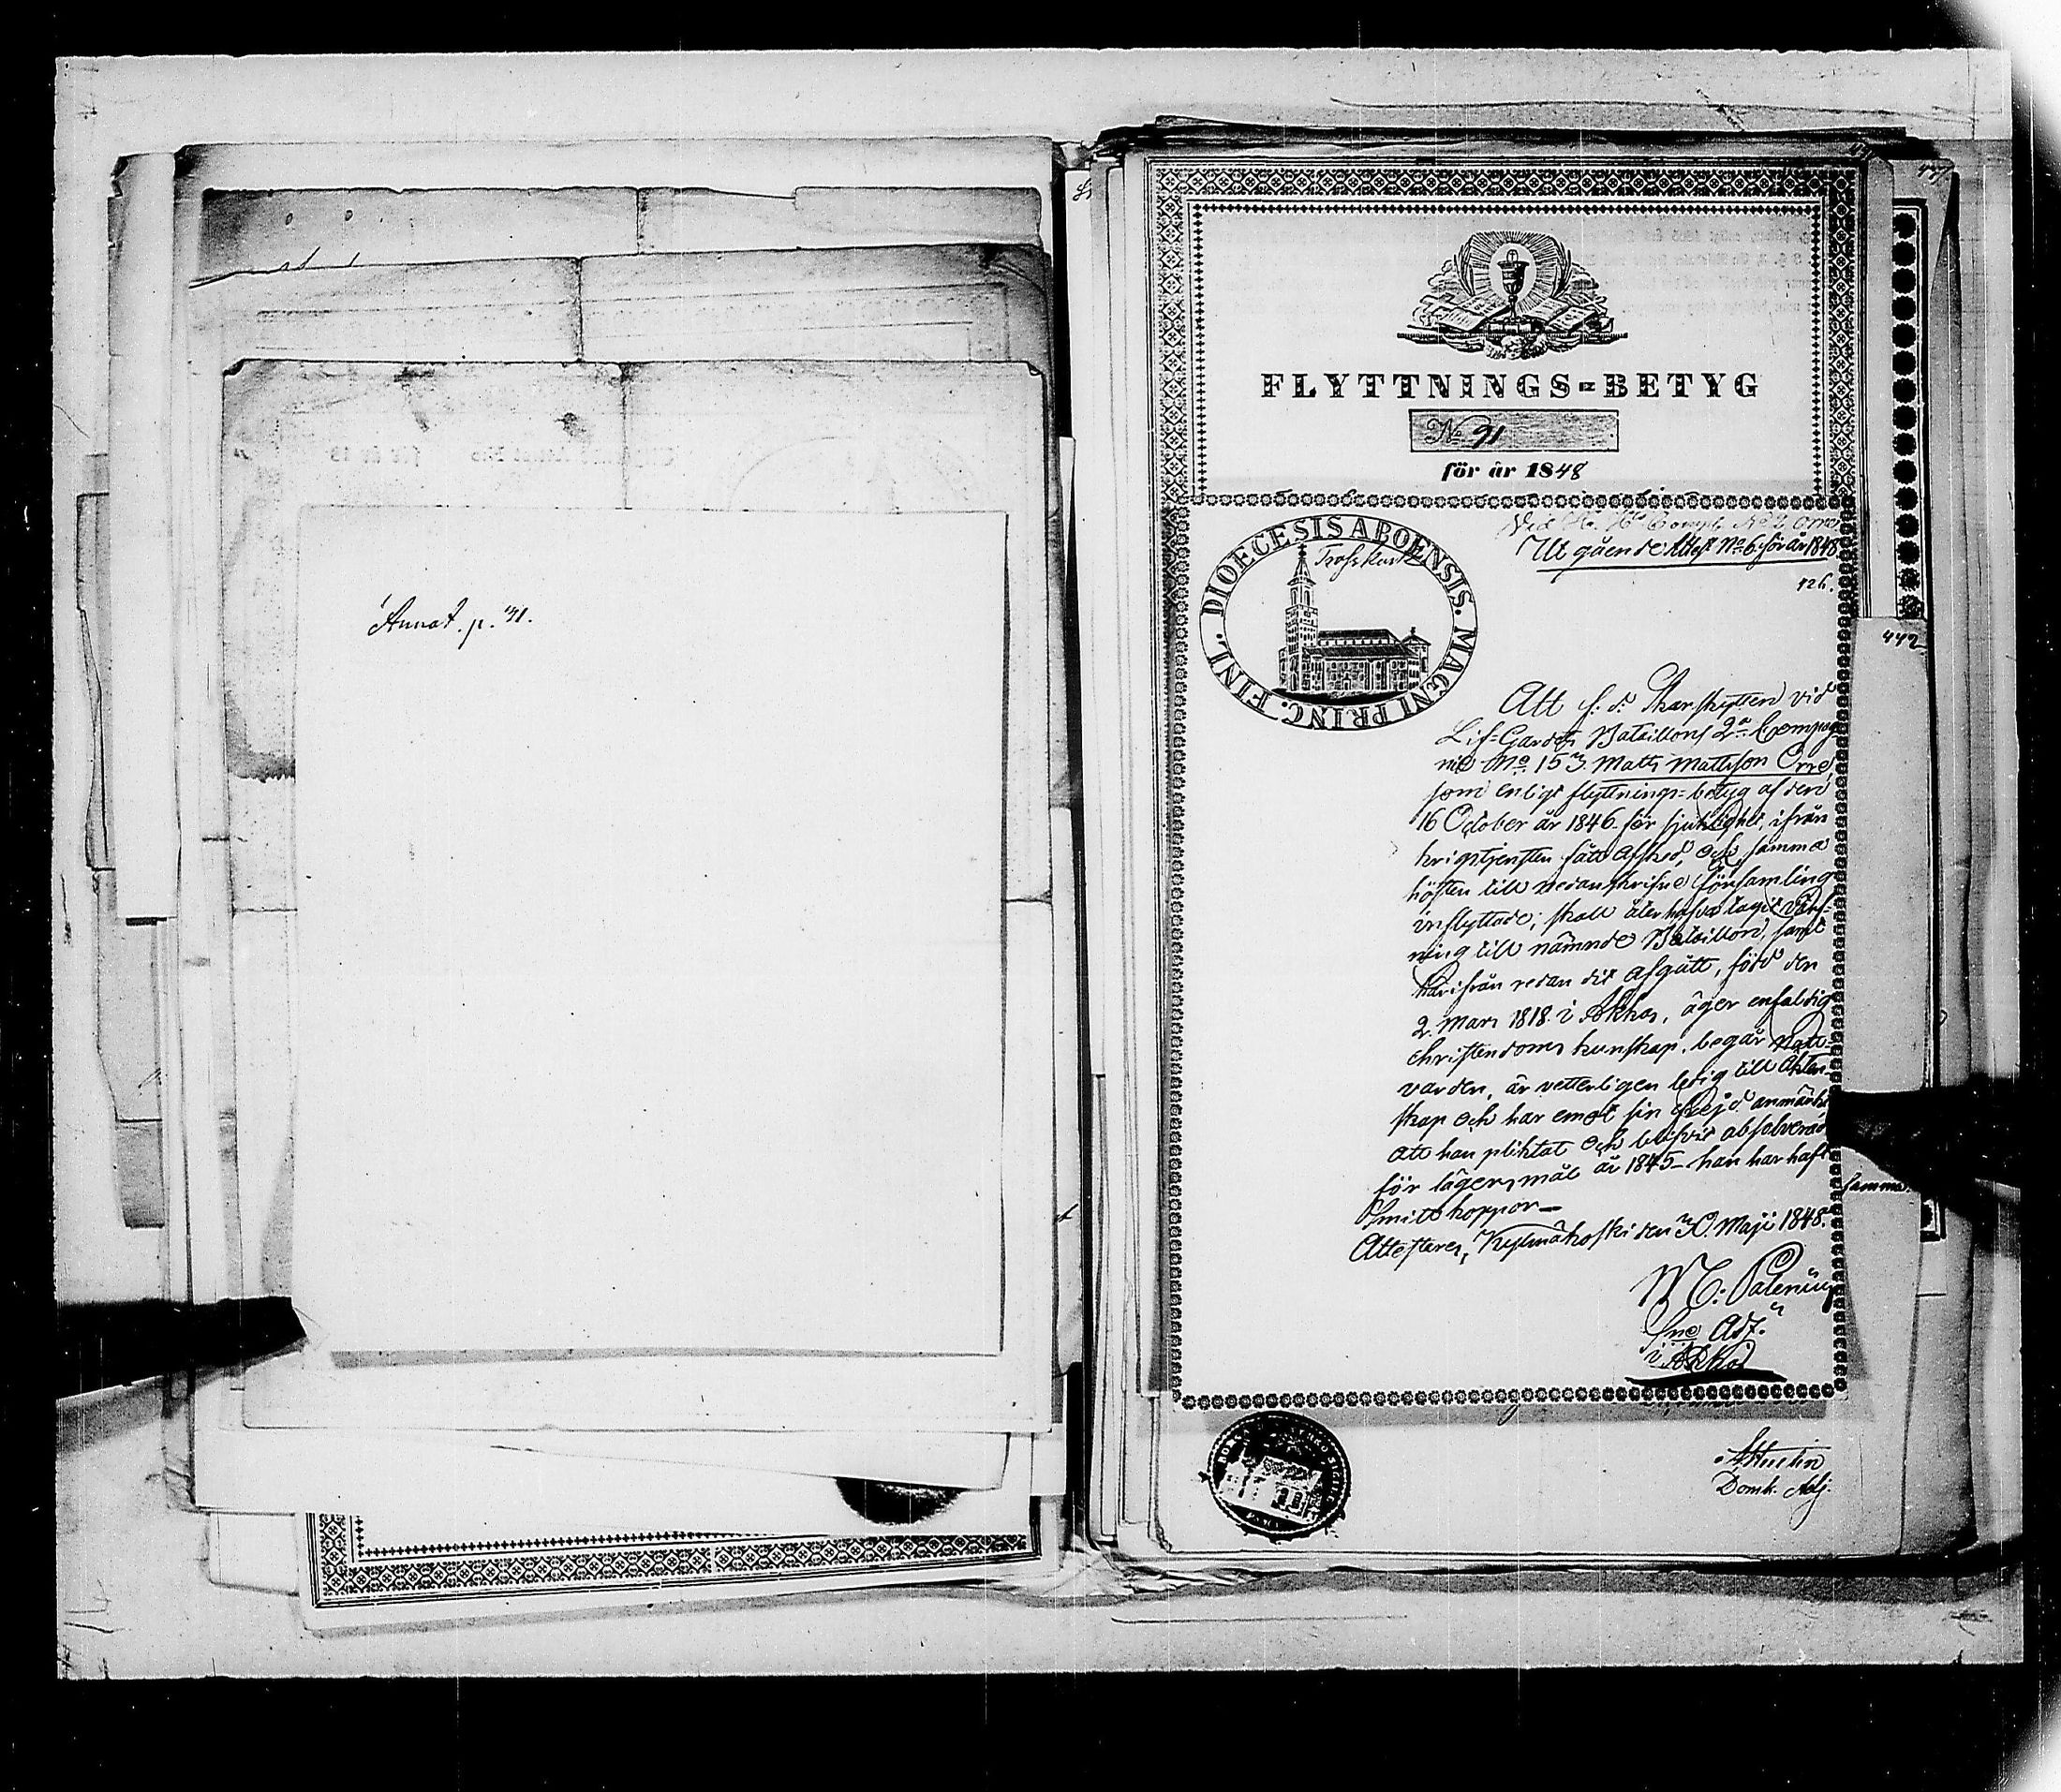 Annot. p. 41.
FLYTTNINGS=BETYG
No 91
för år 1848
Utgående Attest No 6 för år 1848
426.
DIOECESIS ABOENSIS. MAGNI PRINC. FINL.
442
Att f. d. Skarpskytten vid
Lif=Gardets Bataillons 2a Compag
nie No 153 Matts Mattsson Orre,
som enligt flyttnings=betyg af den
16 October år 1846 för sjuklighet ifrån
krigstjensten fått afsked, och samma
hösten till nedanskrifne församling
inflyttade; skall åter hafva tagit värf=
ning till nämnde Bataillon, samt
härifrån redan dit afgått, född den
2 Mars 1818 i Akkas, äger enfaldig
christendoms kunskap, begår natt=
varden, är vetterligen ledig till äkten
skap och har emot sin frejd anmärkt
att han pliktat och blifvit absolverad
för lägersmål år 1845 – han har haft
Smittkoppor –
Attesterar, Kylmäkoski den 30 Maji 1848.
M. Palenius
Sne Adj.
i Akkas
samma
Domk. Adj.